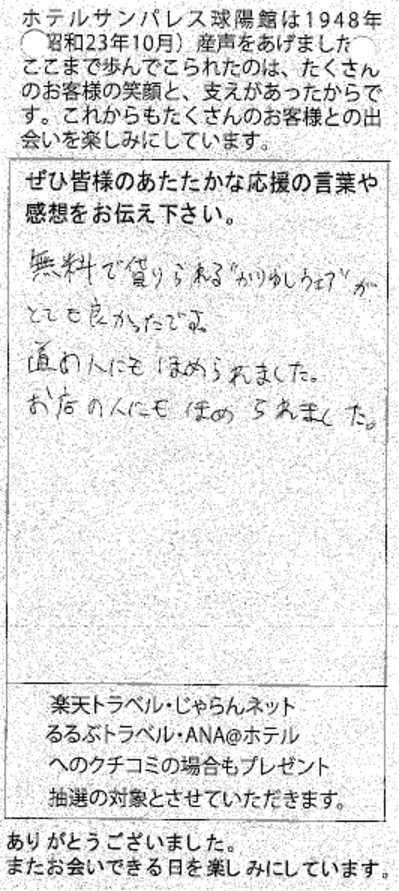 ホテルサンパレス球陽館は1948年
昭和23年10月）産声をあげました
ここまで歩んでこられたのは、たくさん
のお客様の笑顔と、支えがあったからで
す。これからもたくさんのお客様との出
会いを楽しみにしています。
ぜひ皆様のあたたかな応援の言葉や
感想をお伝え下さい。
無料で借りられる"かりゆしウェア"が
とても良かったです。
道の人にもほめられました。
お店の人にもほめられました。
楽天トラベル・じゃらんネット
るるぶトラベル・ANA@ホテル
へのクチコミの場合もプレゼント
抽選の対象とさせていただきます。
ありがとうございました。
またお会いできる日を楽しみにしています。